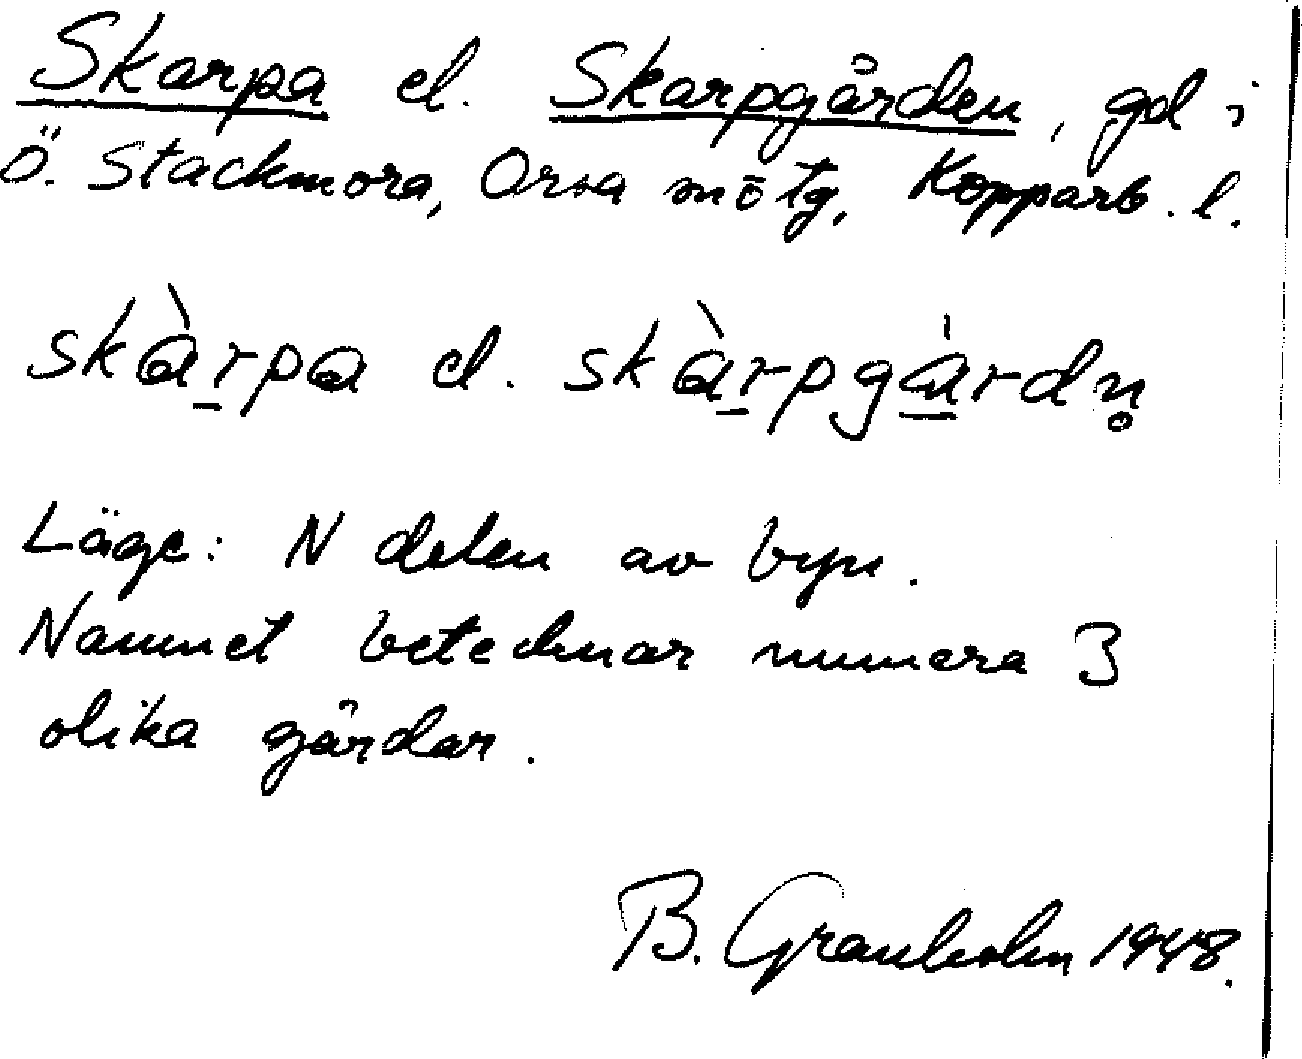 Skarpa el. Skarpgården, gd i
Ö. Stackmora, Orsa sn ö tg, Kopparb. l.
skàrpa el. skàrpgàrdn̥
Läge: N delen av byn.
Namnet betecknar numera 3
olika gårdar.
B. Granholm 1948.